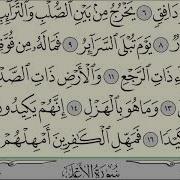 دَافِقٍ ٦ يَخْرُجُ مِنۢ بَيْنِ ٱلصُّلْبِ وَٱلتَّرَآئِبِ
٨ يَوْمَ تُبْلَى ٱلسَّرَآئِرُ ٩ فَمَا لَهُۥ مِن قُوَّةٍ
ذَاتِ ٱلرَّجْعِ ١١ وَٱلْأَرْضِ ذَاتِ ٱلصَّدْ
١٣ وَمَا هُوَ بِٱلْهَزْلِ ١٤ إِنَّهُمْ يَكِيدُونَ
كَيْدًا ١٦ فَمَهِّلِ ٱلْكَٰفِرِينَ أَمْهِلْهُمْ
سُورَةُ الأَعْلَى